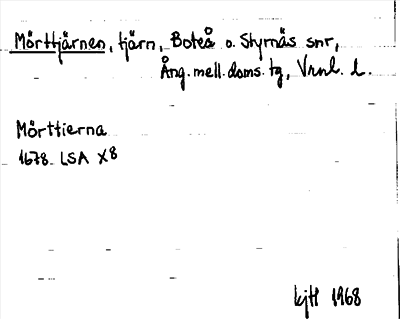 Mörttjärnen, tjärn, Boteå o. Styrnäs snr,
Ång. mell. doms. tg, Vrnl. l.
Mörttierna
1678 LSA X8
kjtl 1968